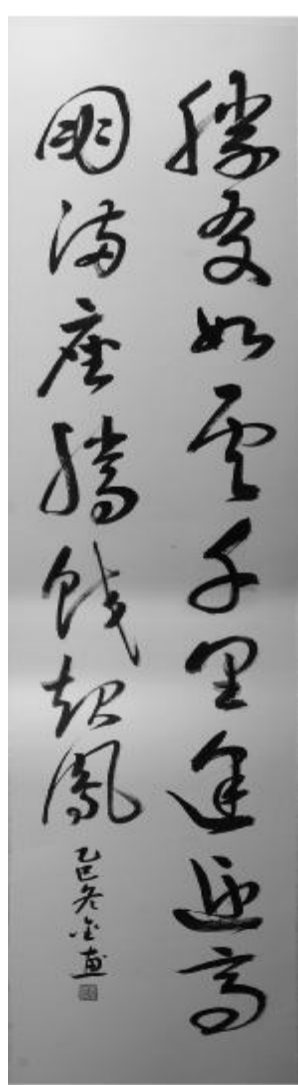 勝友如云千里逢迎高
朋满座騰蛟起鳳
乙巳冬